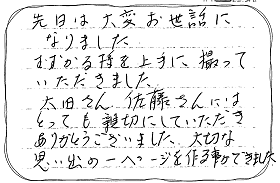 先日は大変お世話に
なりました
むずかる孫を上手に、撮って
いただきました
大田さん 佐藤さんには
とっても親切にしていただき
ありがとうございました、大切な
思い出の一ページを作る事ができました